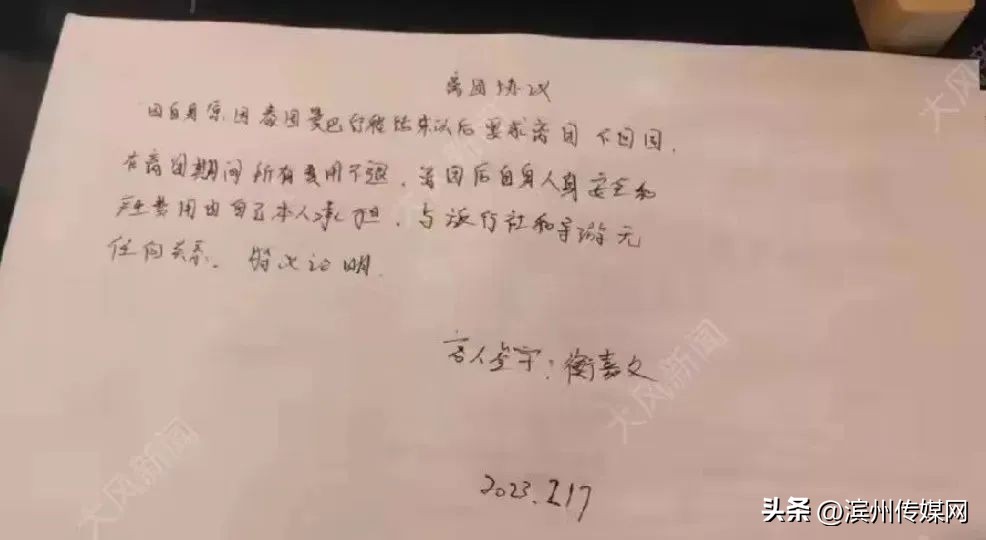 离团协议
因自身原因泰国曼巴行程结束以后要求离团 不回国.
在离团期间所有费用不退. 离团后自身人身安全和
产生费用由自己本人承担. 与旅行社和导游无
任何关系. 特此证明.
客人签字: 衡嘉文
2023.2.17
大风新闻
大风新闻
大风新闻
头条 @滨州传媒网